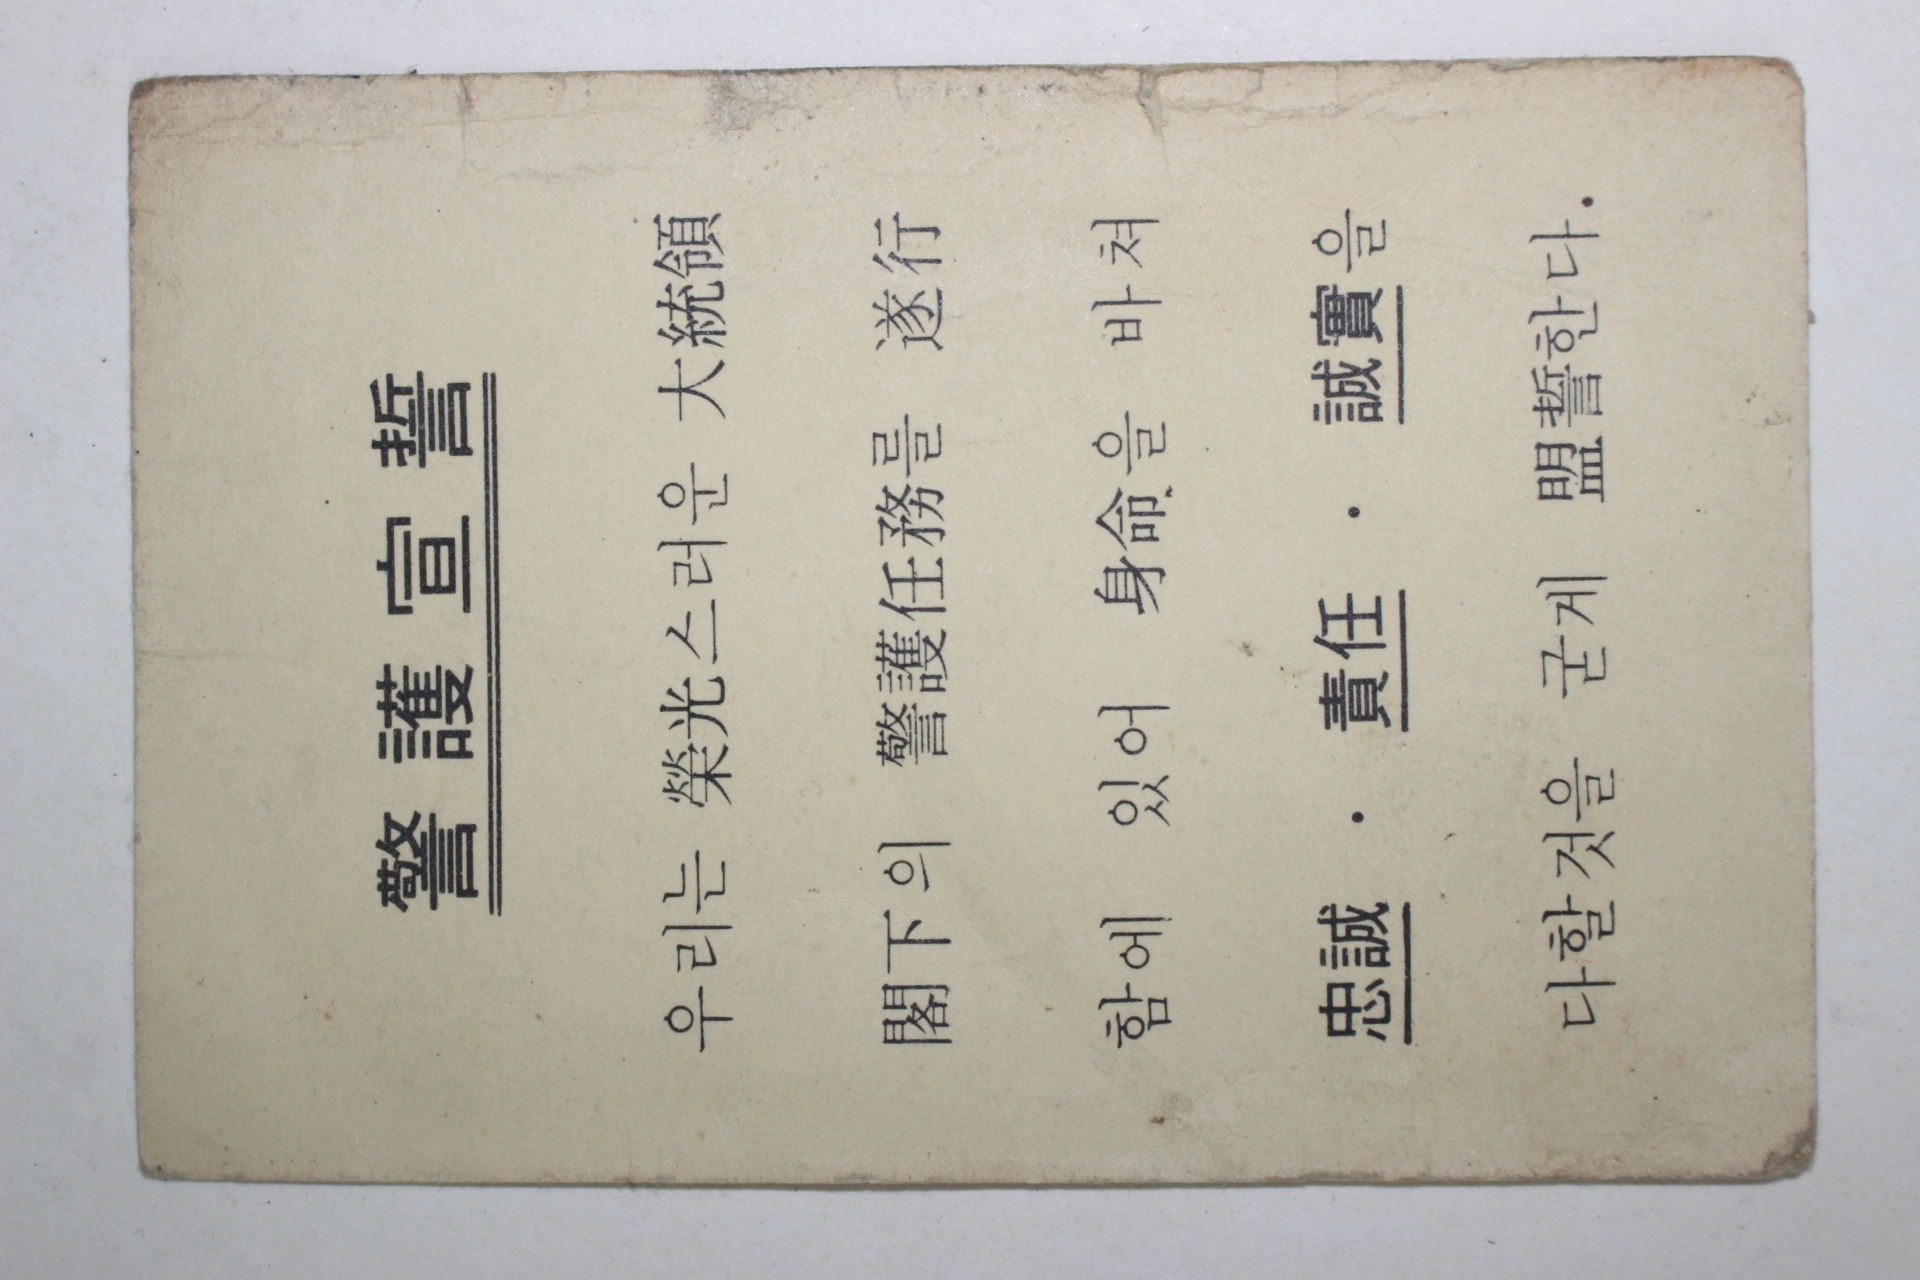 警護宣誓
우리는 榮光스러운 大統領
閣下의 警護任務를 遂行
함에 있어 身命을 바쳐
忠誠 · 責任 · 誠實을
다할것을 굳게 盟誓한다.